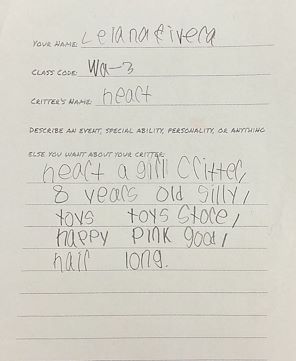 YOUR NAME: Leland Rivera
CLASS CODE: Wa-3
CRITTER'S NAME: heart
DESCRIBE AN EVENT, SPECIAL ABILITY, PERSONALITY, OR ANYTHING
ELSE YOU WANT ABOUT YOUR CRITTER:
heart a girl Critter,
8 years old silly,
toys toys Store,
happy pink good,
hair long.